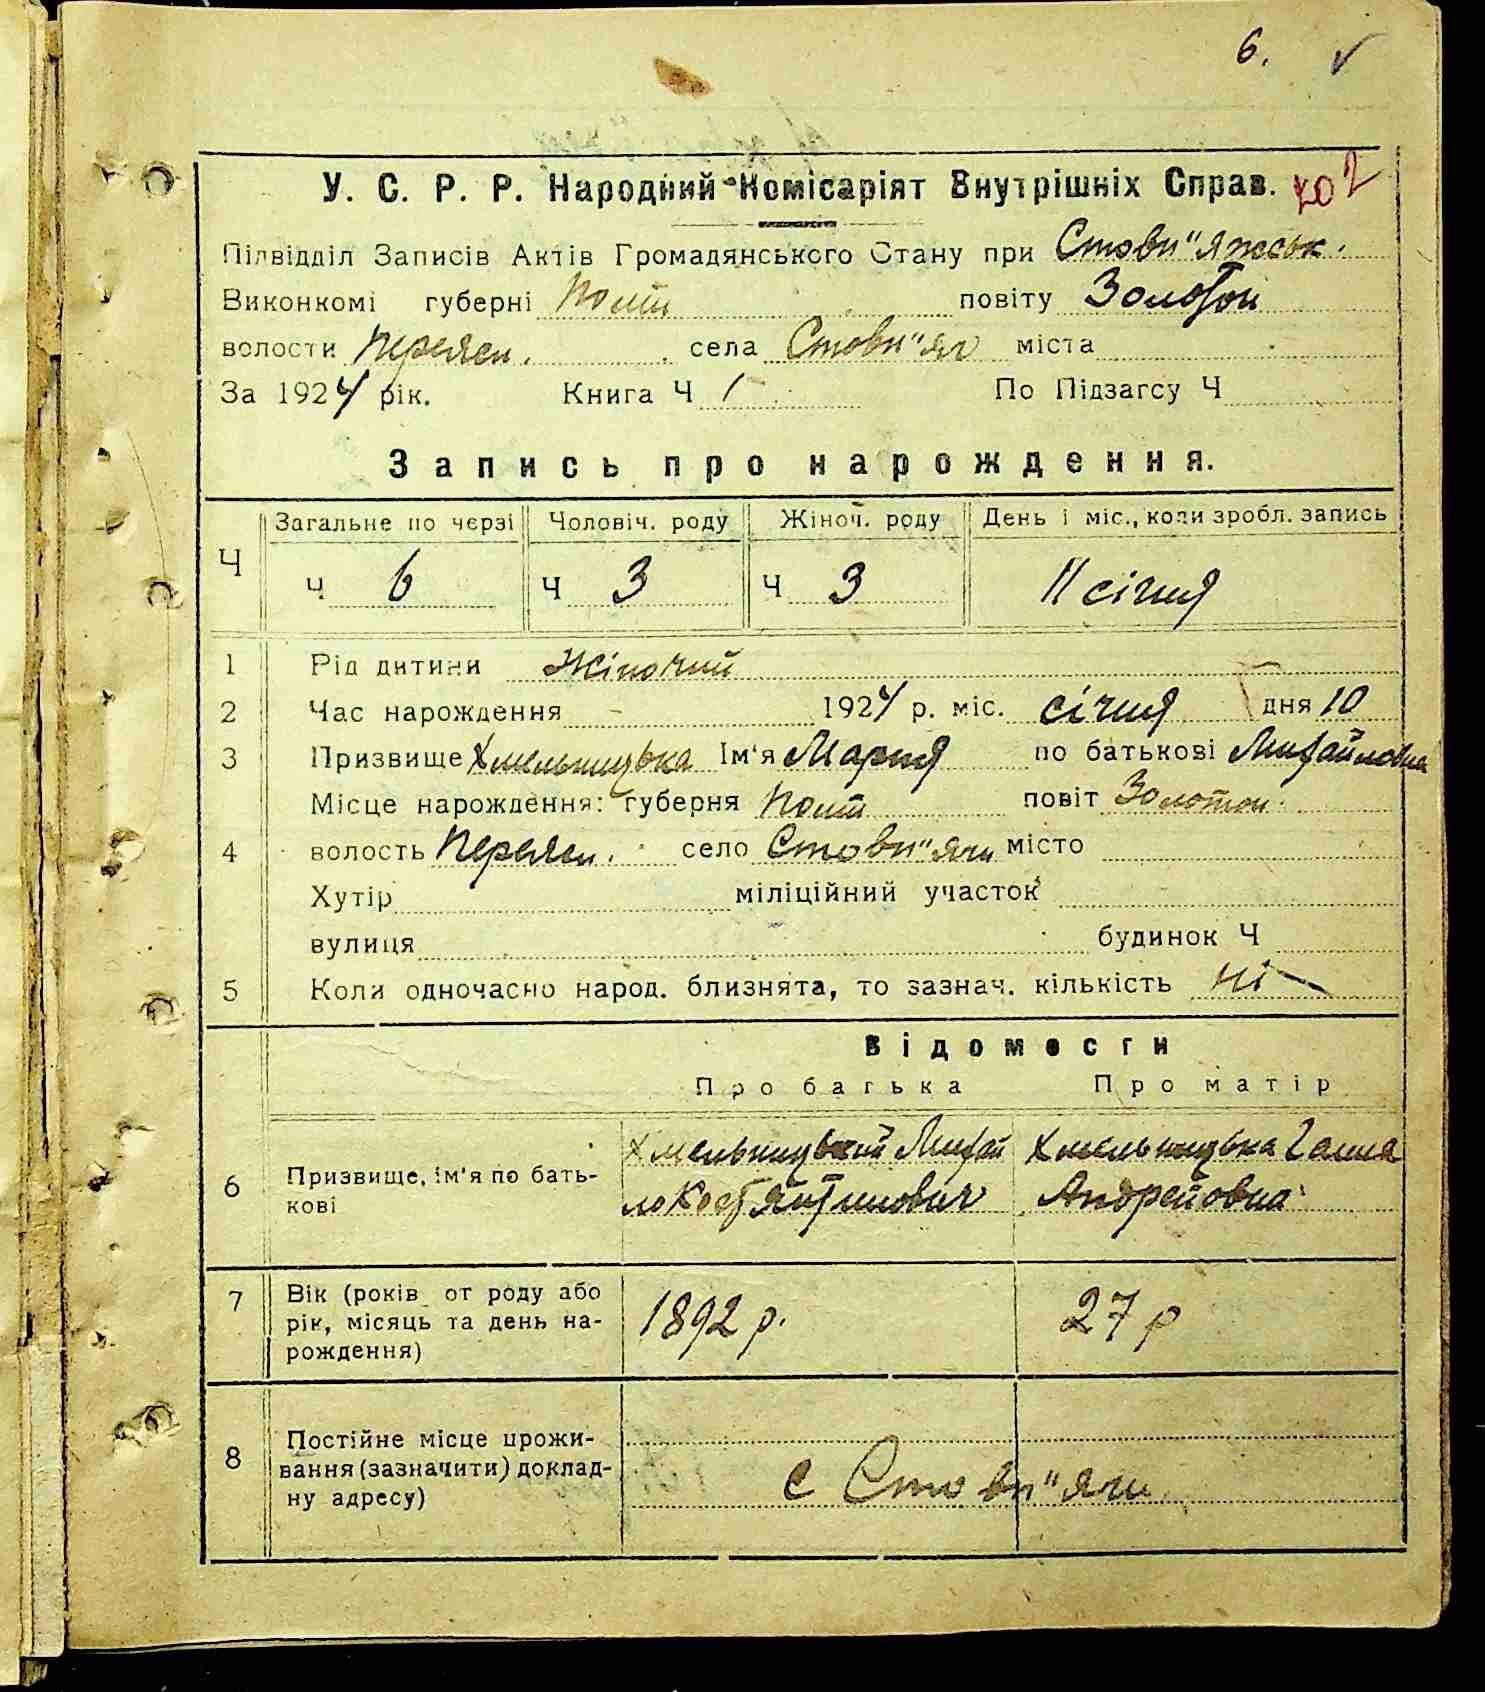 6. ✓
У. С. Р. Р. Народний Комісаріят Внутрішніх Справ. 702
Підвідділ Записів Актів Громадянського Стану при Стовп"яжськ.
Виконкомі губерні Полт повіту Золотон
волости Переясл. села Стовп"яг міста
За 1924 рік. Книга Ч 1 По Підзагсу Ч
Запись про нарождення.
Загальне по черзі Чоловіч. роду Жіноч. роду День і міс., коли зробл. запись
Ч Ч 6 Ч 3 Ч 3 11 січня
1 Рід дитини Жіночий
2 Час нарождення 1924 р. міс. січня дня 10
3 Призвище Хмельницька Ім'я Мария по батькові Михайловна
Місце нарождення: губерня Полт повіт Золотон.
4 волость Переясл. село Стовп"яги місто
Хутір міліційний участок
вулиця будинок Ч
5 Коли одночасно народ. близнята, то зазнач. кількість ні
Відомости
Про батька Про матір
Хмельницький Михай Хмельницька Ганна
6 Призвище, ім'я по бать-
кові ло Костянтинович Андреєвна
7 Вік (років от роду або
рік, місяць та день на- 1892 р. 27 р
рождення)
Постійне місце прожи-
8 вання (зазначити) доклад- с Стовп"яги
ну адресу)